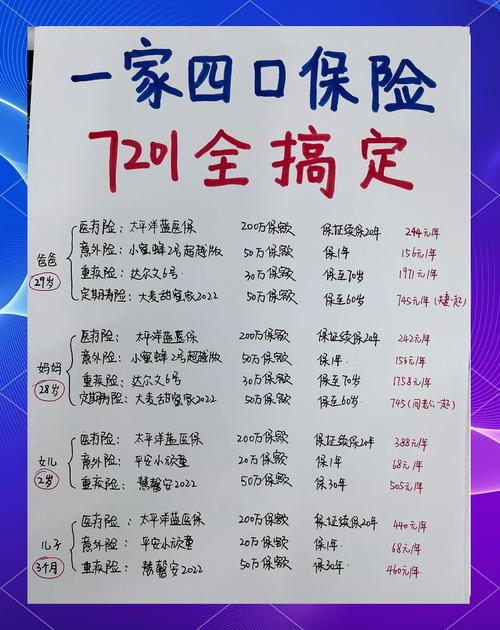 一家四口保险
7201全搞定
爸爸
29岁
医疗险: 太平洋蓝医保 200万保额 保证续保20年 244元/年
意外险: 小蜜蜂2号超越版 50万保额 保1年 156元/年
重疾险: 达尔文6号 30万保额 保至70岁 1971元/年
定期寿险: 大麦甜蜜家2022 50万保额 保至60岁 745元/年(夫妻一起)
妈妈
28岁
医疗险: 太平洋蓝医保 200万保额 保证续保20年 242元/年
意外险: 小蜜蜂2号超越版 50万保额 保1年. 156元/年
重疾险: 达尔文6号 30万保额 保至70岁 1758元/年
定期寿险: 大麦甜蜜家2022 50万保额 保至60岁. 745(同老公一起)
女儿
2岁
医疗险: 太平洋蓝医保 200万保额 保证续保20年 388元/年
意外险: 平安小顽童 20万保额 保1年 68元/年
重疾险: 慧馨安2022 50万保额 保30年 505元/年
儿子
3个月
医疗险: 太平洋蓝医保 200万保额 保证续保20年 440元/年
意外险: 平安小顽童 20万保额 保1年. 68元/年
重疾险: 慧馨安2022 50万保额 保30年. 460元/年